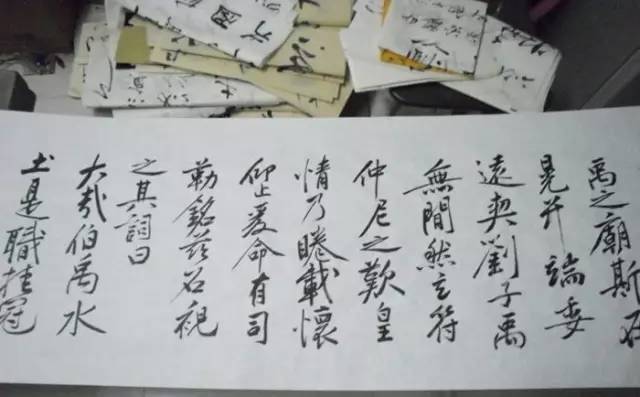 禹之廟斯在
冕弁端委
遠契劉子禹
無閒然玄符
仲尼之歎皇
情乃睠載懷
仰止爰命有司
勒銘茲石視
之其詞曰
大哉伯禹水
土是職挂冠